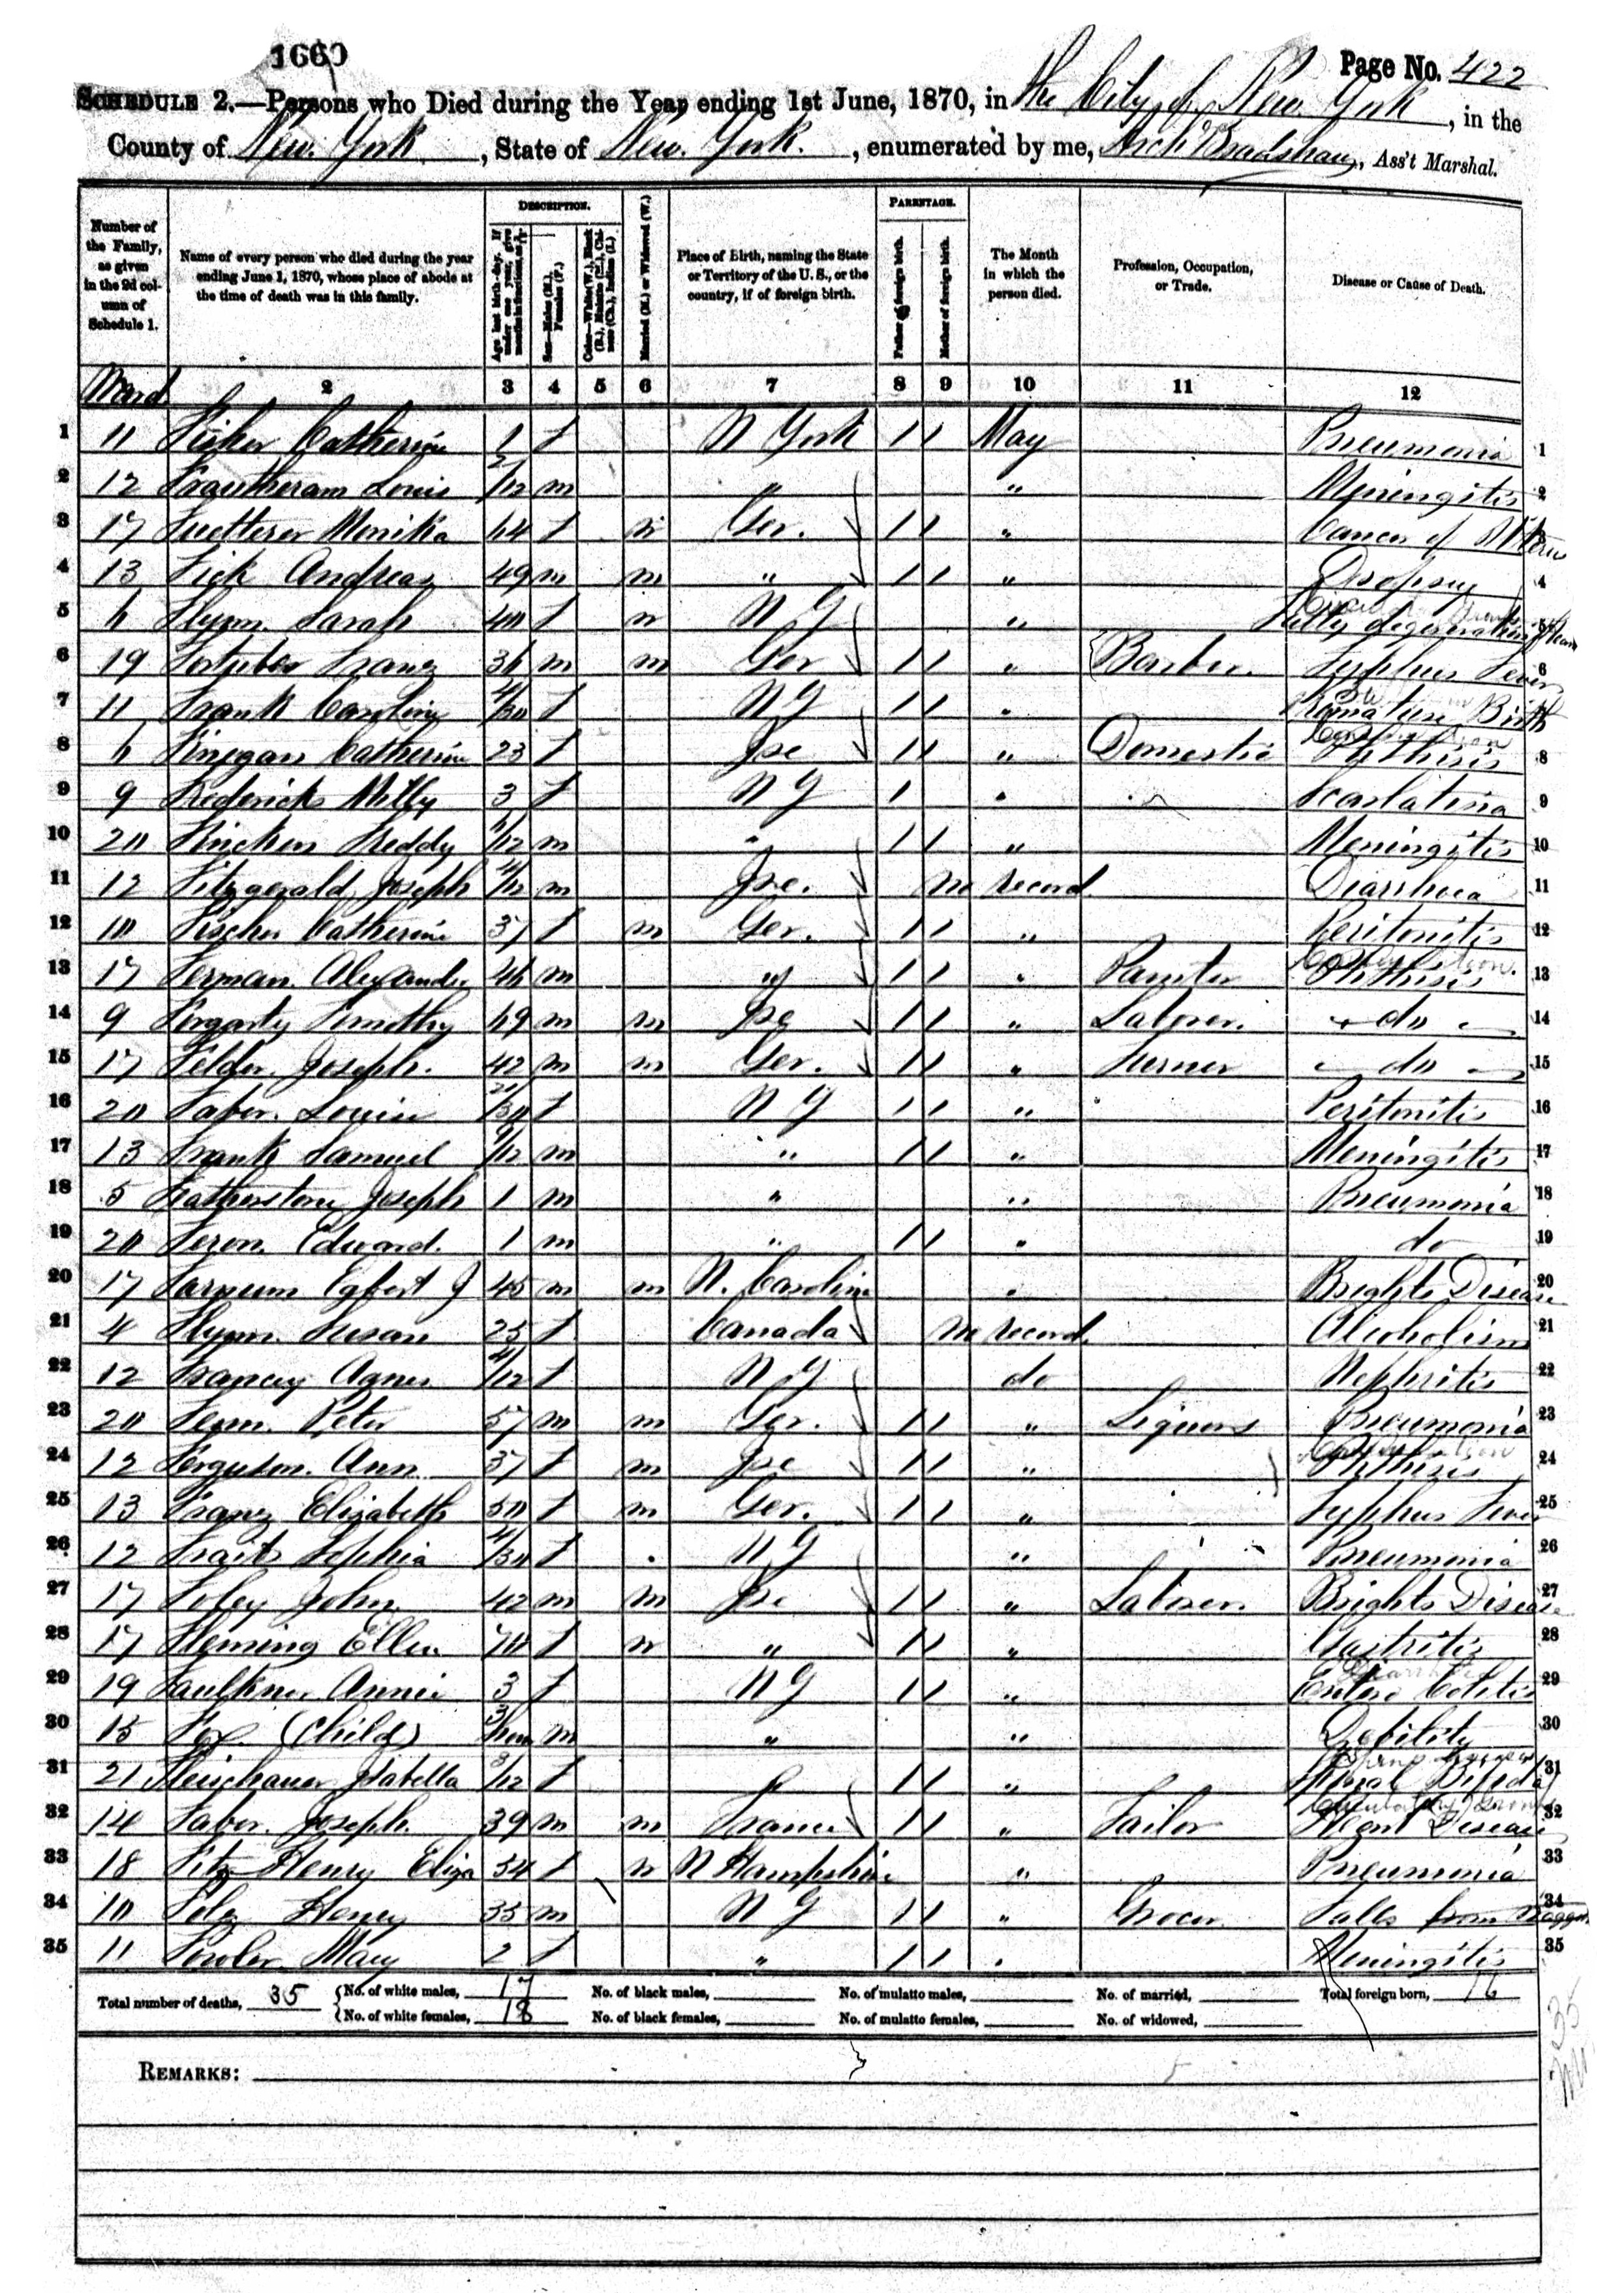 1660
Page No. 422
SCHEDULE 2.—Persons who Died during the Year ending 1st June, 1870, in the City of New York, in the
County of New York, State of New York., enumerated by me, Arch Bradshaw, Ass't Marshal.
Number of the Family, as given in the 2d column of Schedule 1.
Name of every person who died during the year ending June 1, 1870, whose place of abode at the time of death was in this family.
DESCRIPTION.
Age last birth-day. If under one year, give months in fractions, thus,
Sex—Males (M.), Females (F.)
Color—White (W.), Black (B.), Mulatto (M.), Chinese (Ch.), Indian (I.)
Married (M.) or Widowed (W.)
Place of Birth, naming the State or Territory of the U. S., or the country, if of foreign birth.
PARENTAGE.
Father of foreign birth.
Mother of foreign birth.
The Month in which the person died.
Profession, Occupation, or Trade.
Disease or Cause of Death.
Ward 2 3 4 5 6 7 8 9 10 11 12
1 11 Fisher Catherine 1 f N York 1 1 May Pneumonia 1
2 12 Louis /12 m " " Meningitis 2
3 17 Monika 64 f Ger. 1 1 " Cancer of Uterus
4 13 Fick Andreas 49 m m " 1 1 " Dropsy 4
5 6 Flynn Sarah 40 f N Y " Fatty degeneration of Heart
6 19 Franz 36 m m Ger 1 1 " Barber Typhus Fever 6
7 11 Frank Caroline 4/30 f N Y 1 1 " Premature Birth
8 6 Finegan Catherine 23 f Ire 1 1 " Domestic Phthisis 8
9 9 Frederick Milly 3 f N Y 1 " Scarlatina 9
10 20 Fincken Freddy /12 m " 1 1 " Meningitis 10
11 12 Fitzgerald Joseph 4/12 m Ire. no record Diarrhoea 11
12 10 Fischer Catherine 37 f m Ger. 1 1 " Peritonitis 12
13 17 Ferman Alexander 46 m " 1 1 " Painter Phthisis 13
14 9 Fogarty Timothy 69 m m Ire 1 1 " Laborer. do 14
15 17 Felder Joseph. 42 m m Ger. 1 1 " Turner do 15
16 20 Faber. Louise /30 f N Y 1 1 " Peritonitis 16
17 13 Frank Samuel 9/12 m " 1 1 " Meningitis 17
18 5 Featherstone Joseph 1 m " " Pneumonia 18
19 20 Feron. Edward. 1 m " 1 1 " do 19
20 17 Farnum Egbert J 45 m m N. Carolina " Brights Disease 20
21 4 Flynn. Susan 25 f Canada no record Alcoholism 21
22 12 Francey Agnes 4/12 f N Y do Nephritis 22
23 20 Fenn. Peter 57 m m Ger. 1 1 " Liquors Pneumonia 23
24 12 Ferguson. Ann 37 f m Ire 1 1 " Phthisis 24
25 13 Franz Elizabeth 50 f m Ger. 1 1 " Typhus Fever 25
26 12 Sophia 4/30 f N Y " Pneumonia 26
27 17 Foley John. 42 m m Ire 1 1 " Laborer. Brights Disease 27
28 17 Fleming Ellen 70 f " 1 1 " Gastritis 28
29 19 Faulkner Annie 3 f N Y 1 1 " Entero Colitis 29
30 15 Fox (Child) m " " Debility 30
31 21 Fleischauer Isabella 3/12 f 1 1 " Spinal Bifida 31
32 14 Faber. Joseph. 39 m m France 1 1 " Tailor Heart Disease 32
33 18 Fitz Henry Eliza 54 f N Hampshire " Pneumonia 33
34 10 Henry 35 m N Y 1 1 " Grocer Falls from 34
35 11 Fowler Mary 2 f " 1 1 " Meningitis 35
Total number of deaths, 35 No. of white males, 17 No. of black males, No. of mulatto males, No. of married, Total foreign born, 16
No. of white females, 18 No. of black females, No. of mulatto females, No. of widowed,
REMARKS:
35